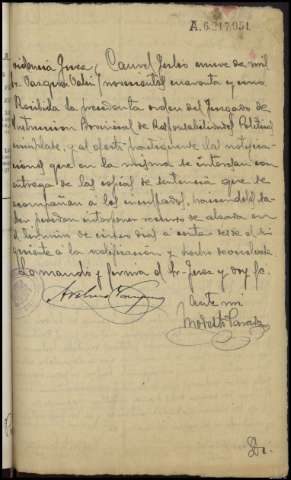 A.6.217.951
Providencia Juez
Sr. Vazquez Valin
novecientos cuarenta y uno.
Recibida la precedente orden del Juzgado de
Instruccion Provincial de Responsabilidades Politicas
cumplase, y al efecto practiquense las notifica-
ciones que en la misma se interesan con
entrega de las copias de sentencia que se
acompañan a los inculpados, haciendoles sa-
ber podran interponer recurso de alzada en
el termino de cinco dias a contar desde el si-
guiente a la notificación y hecho devuelvase
Lo mando y firma el Sr. Juez y doy fe.
Ante mi
Modesto